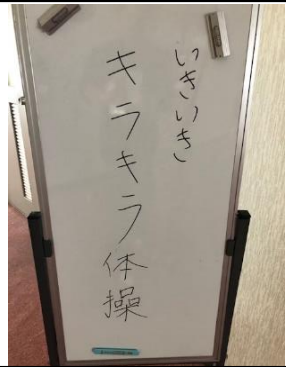 いきいき
キラキラ体操